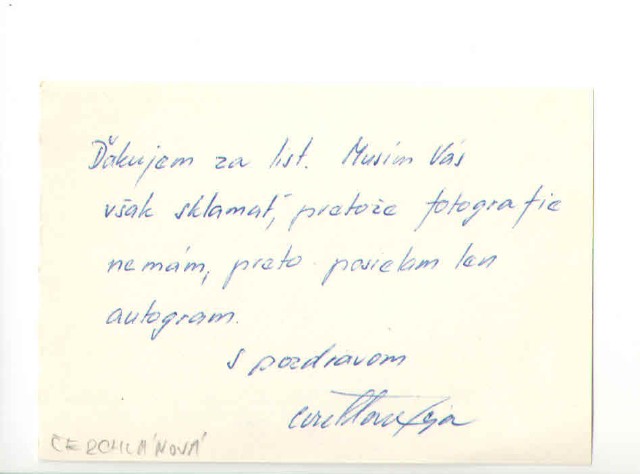 Ďakujem za list. Musím Vás
však sklamať, pretože fotografie
nemám, preto posielam len
autogram.
S pozdravom
ČERCHLÁNOVÁ